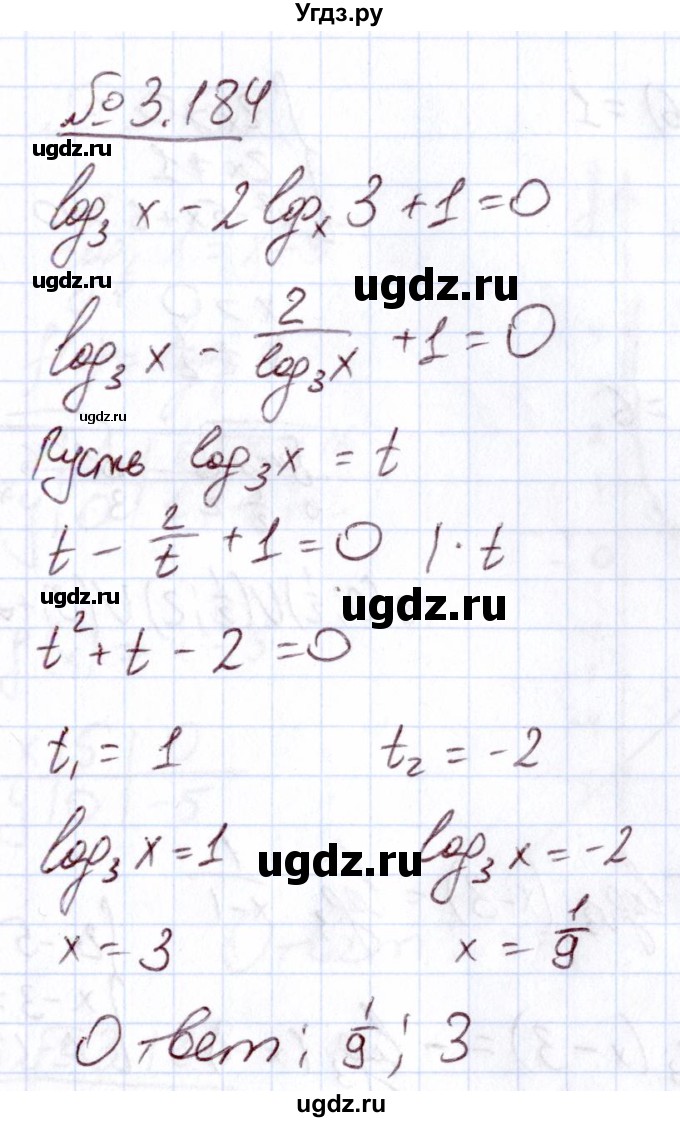 Угдз.ру
№ 3.184
ugdz.ru
log₃ x - 2 logₓ 3 + 1 = 0
ugdz.ru
ugdz.ru
log₃ x - 2/log₃ x + 1 = 0
ugdz.ru
Пусть log₃ x = t
t - 2/t + 1 = 0 | · t
ugdz.ru
ugdz.ru
t² + t - 2 = 0
t₁ = 1 t₂ = -2
log₃ x = 1 log₃ x = -2
ugdz.ru
x = 3 x = 1/9
Ответ: 1/9; 3
ugdz.ru
ugdz.ru